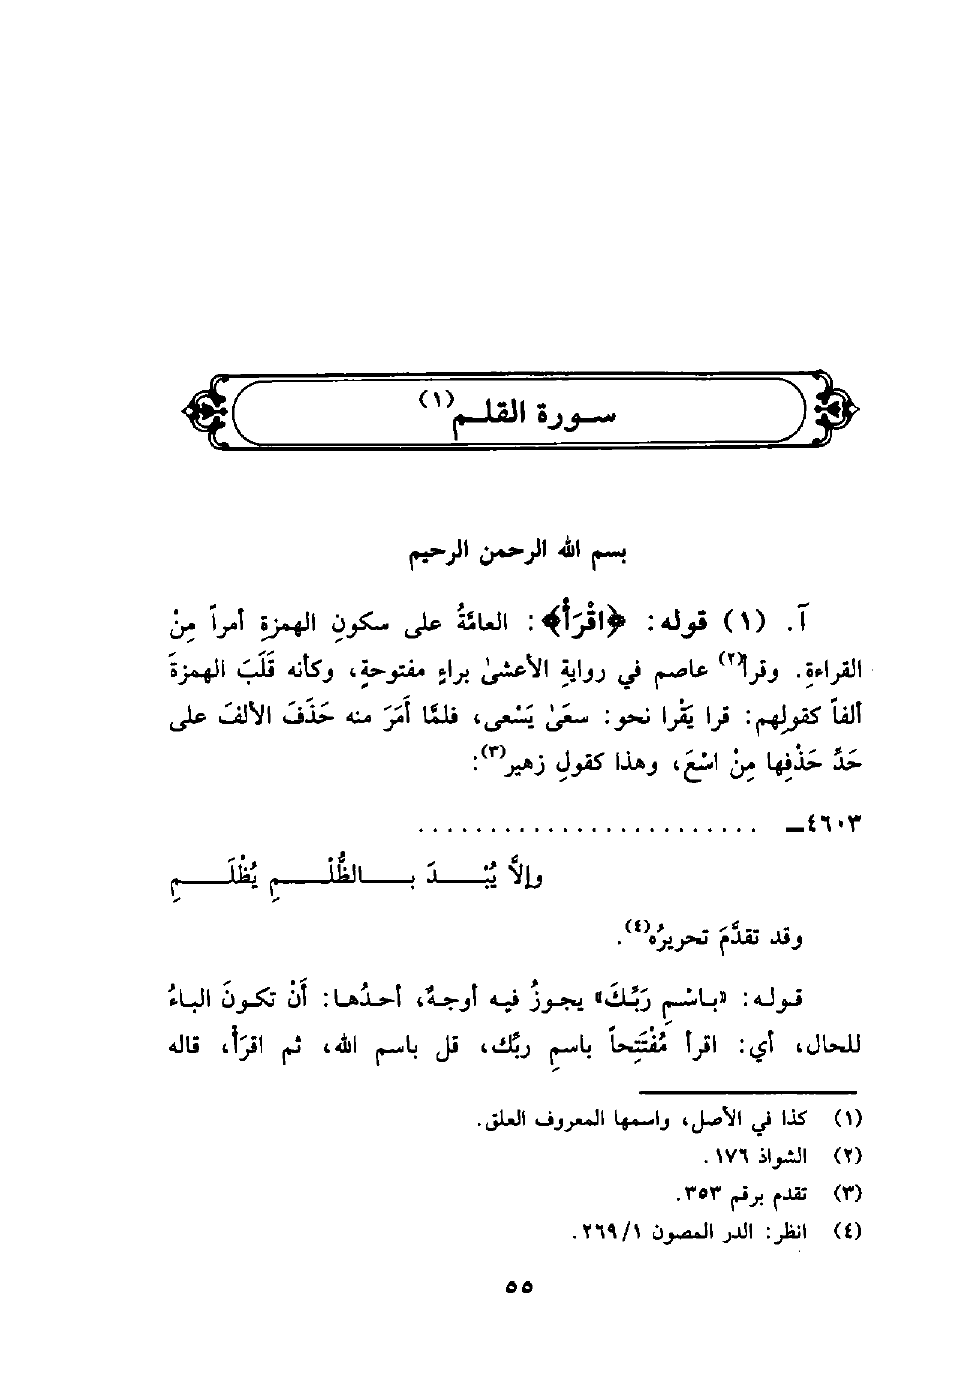 سورة القلم(١)
بسم الله الرحمن الرحيم
آ. (١) قوله: ﴿اقْرَأْ﴾: العامَّةُ على سكونِ الهمزةِ أمراً مِنْ
القراءةِ. وقرأ(٢) عاصم في روايةِ الأعشىٰ براءٍ مفتوحةٍ، وكأنه قَلَبَ الهمزةَ
ألفاً كقولِهم: قرا يَقْرا نحو: سعَىٰ يَسْعى، فلمَّا أَمَرَ منه حَذَفَ الألفَ على
حَدِّ حَذْفِها مِنْ اسْعَ، وهذا كقولِ زهير(٣):
٤٦٠٣ـ . . . . . . . . . . . . . . . . . . . . . . . .
وإلَّا يُبْـدَ بـالظُّلْـمِ يُظْلَـمِ
وقد تقدَّمَ تحريرُه(٤).
قوله: «باسْمِ رَبِّكَ» يجوزُ فيه أوجهٌ، أحدُها: أَنْ تكونَ الباءُ
للحال، أي: اقرأ مُفْتَتِحاً باسمِ ربِّك، قل باسم الله، ثم اقرَأْ، قاله
(١) كذا في الأصل، واسمها المعروف العلق.
(٢) الشواذ ١٧٦.
(٣) تقدم برقم ٣٥٣.
(٤) انظر: الدر المصون ٢٦٩/١.
٥٥